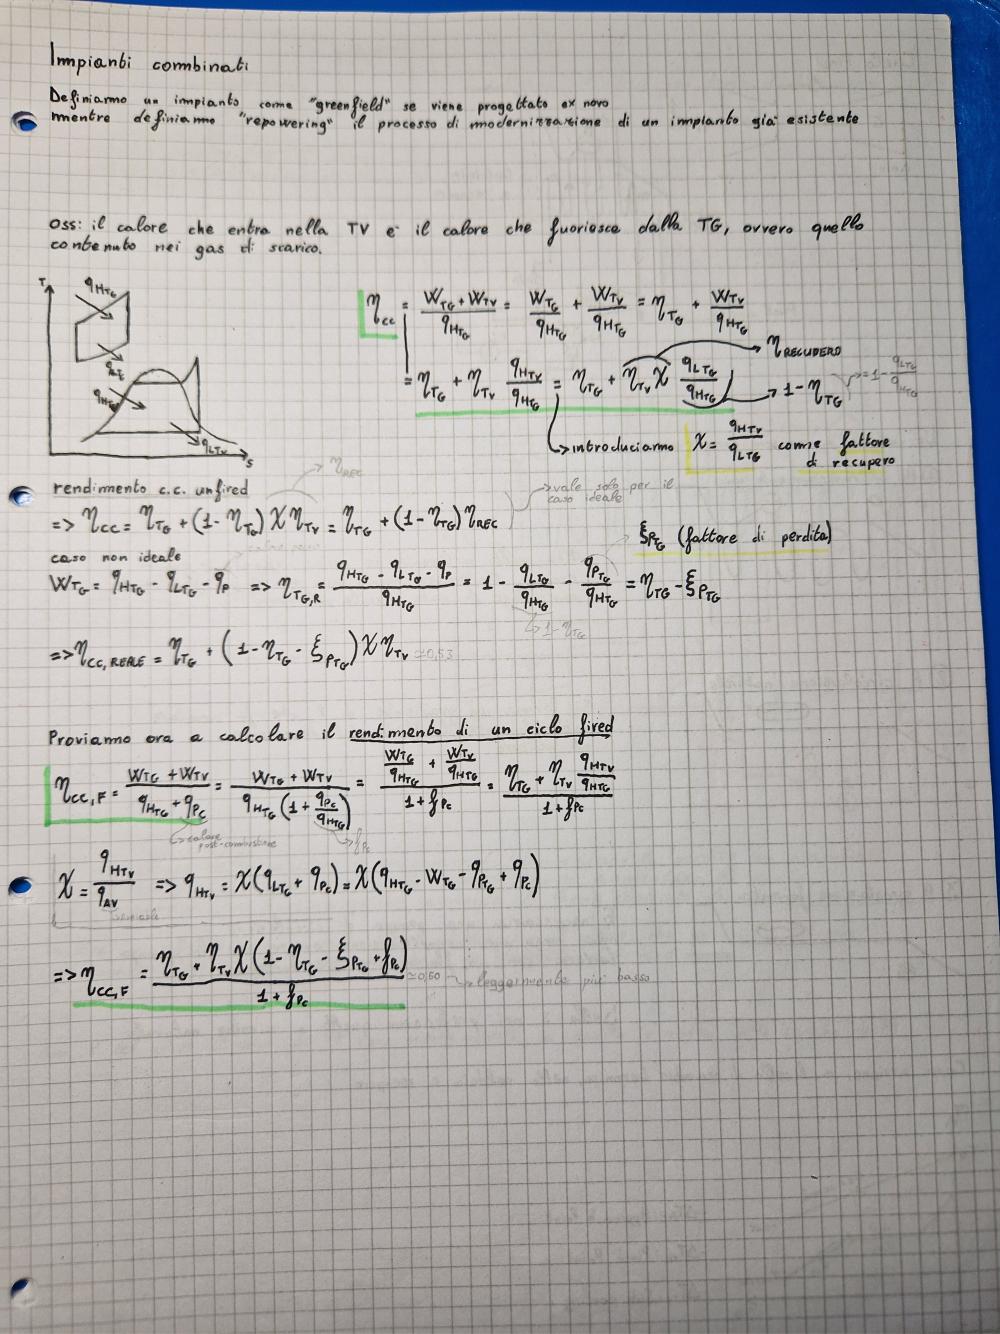 Impianti combinati
Definiamo un impianto come "greenfield" se viene progettato ex novo
mentre definiamo "repowering" il processo di modernizzazione di un impianto già esistente
Oss: il calore che entra nella TV è il calore che fuoriesce dalla TG, ovvero quello
contenuto nei gas di scarico.
T
q_HTG
q_LTG
q_HTV
q_LTV
s
η_CC = (W_TG + W_TV)/q_HTG = W_TG/q_HTG + W_TV/q_HTG = η_TG + W_TV/q_HTG
η_RECUPERO
= η_TG + η_TV q_HTV/q_HTG = η_TG + η_TV χ q_LTG/q_HTG → 1-η_TG = 1 - q_LTG/q_HTG
→ introduciamo χ = q_HTV/q_LTG come fattore
di recupero
rendimento c.c. unfired
η_REC
→ vale solo per il
caso ideale
=> η_CC = η_TG + (1-η_TG) χ η_TV = η_TG + (1-η_TG) η_REC
ξ_PTG (fattore di perdita)
caso non ideale
W_TG = q_HTG - q_LTG - q_P => η_TG,R = (q_HTG - q_LTG - q_P)/q_HTG = 1 - q_LTG/q_HTG - q_PTG/q_HTG = η_TG - ξ_PTG
→ 1-η_TG
=> η_CC,REALE = η_TG + (1-η_TG - ξ_PTG) χ η_TV ≈0,53
Proviamo ora a calcolare il rendimento di un ciclo fired
η_CC,F = (W_TG + W_TV)/(q_HTG + q_PC) = (W_TG + W_TV)/(q_HTG (1 + q_PC/q_HTG)) = (W_TG/q_HTG + W_TV/q_HTG)/(1 + f_PC) = (η_TG + η_TV q_HTV/q_HTG)/(1 + f_PC)
→ calore
post-combustione
→ f_PC
χ = q_HTV/q_AV => q_HTV = χ(q_LTG + q_PC) = χ(q_HTG - W_TG - q_PTG + q_PC)
=> η_CC,F = (η_TG + η_TV χ (1-η_TG - ξ_PTG + f_PC))/(1 + f_PC) ≈0,50 → leggermente più basso